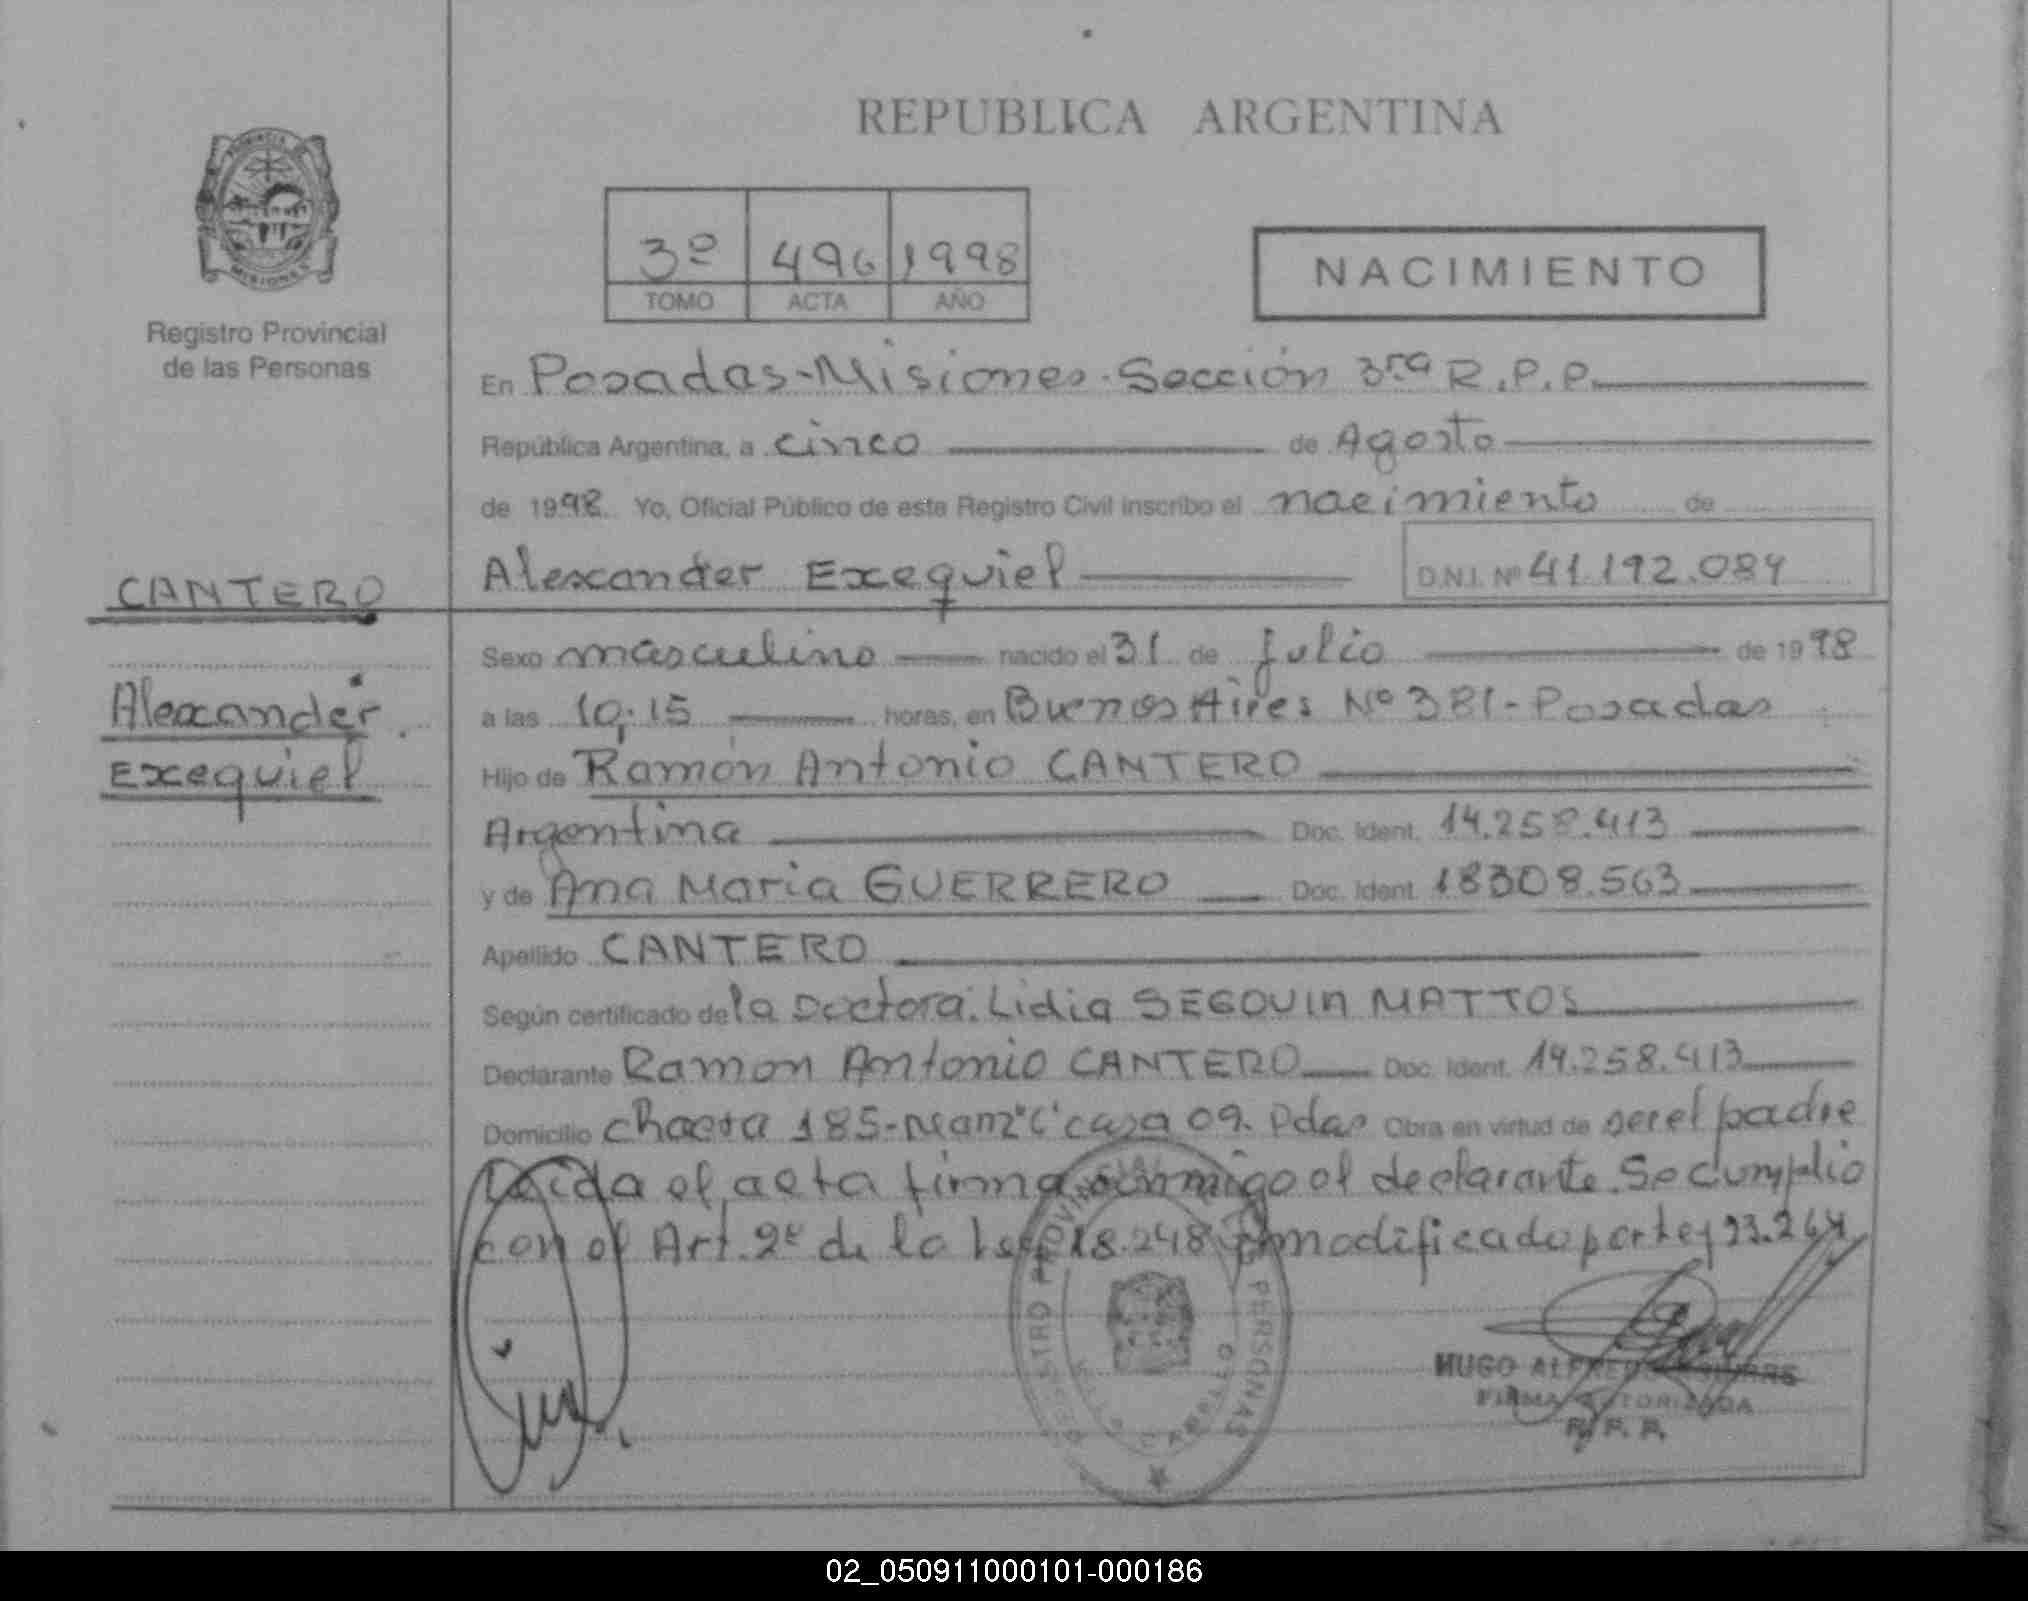 REPUBLICA ARGENTINA
PROVINCIA DE
MISIONES
Registro Provincial
de las Personas
3º 496 1998
TOMO ACTA AÑO
NACIMIENTO
En Posadas-Misiones-Sección 3ra R.P.P.
República Argentina, a cinco de Agosto
de 1998. Yo, Oficial Público de este Registro Civil inscribo el nacimiento de
CANTERO
Alexander Exequiel D.N.I. Nº 41.192.084
Sexo masculino nacido el 31 de julio de 1998
Alexander
Exequiel
a las 10:15 horas, en Buenos Aires Nº 381-Posadas
Hijo de Ramón Antonio CANTERO
Argentina Doc. Ident. 14.258.413
y de Ana Maria GUERRERO Doc. Ident. 18308.563
Apellido CANTERO
Según certificado de la Doctora: Lidia SEGOVIA MATTOS
Declarante Ramon Antonio CANTERO Doc. Ident. 14.258.413
Domicilio Chacra 185-Manz"C"casa 09. Pdas Obra en virtud de ser el padre
Leida el acta firma conmigo el declarante. Se cumplio
con el Art. 2º de la Ley 18.248 modificado por Ley 23.264
REGISTRO PROVINCIAL PERSONAS
HUGO ALFREDO
FIRMA AUTORIZADA
R. P. P.
02_050911000101-000186